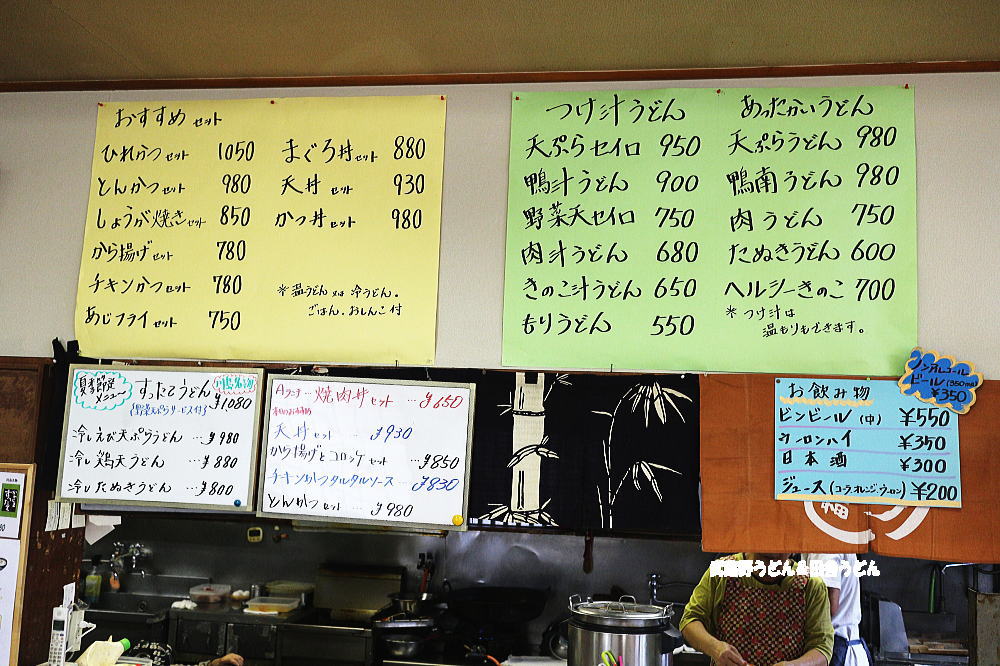 おすすめセット
ひれかつセット 1050
とんかつセット 980
しょうが焼きセット 850
から揚げセット 780
チキンかつセット 780
あじフライセット 750
まぐろ丼セット 880
天丼セット 930
かつ丼セット 980
※温うどん又は冷うどん。
ごはん、おしんこ付
つけ汁うどん
天ぷらセイロ 950
鴨汁うどん 900
野菜天セイロ 750
肉汁うどん 680
きのこ汁うどん 650
もりうどん 550
あったかいうどん
天ぷらうどん 980
鴨南うどん 980
肉うどん 750
たぬきうどん 600
ヘルシーきのこ 700
※つけ汁は
温もりもできます。
夏季限定
メニュー
すったてうどん
川島名物
(野菜天ぷらサービス付) ¥1080
冷しえび天ぷらうどん …¥980
冷し鶏天うどん …¥880
冷したぬきうどん …¥800
Aランチ…焼肉丼セット …¥650
本日のお魚
天丼セット …¥930
から揚げとコロッケセット …¥850
チキンかつタルタルソース …¥830
とんかつセット …¥980
ノンアルコール
ビール(350ml)
¥350
お飲み物
ビンビール(中) ¥550
ウーロンハイ ¥350
日本酒 ¥300
ジュース(コーラ.オレンジ.ウーロン) ¥200
うどん